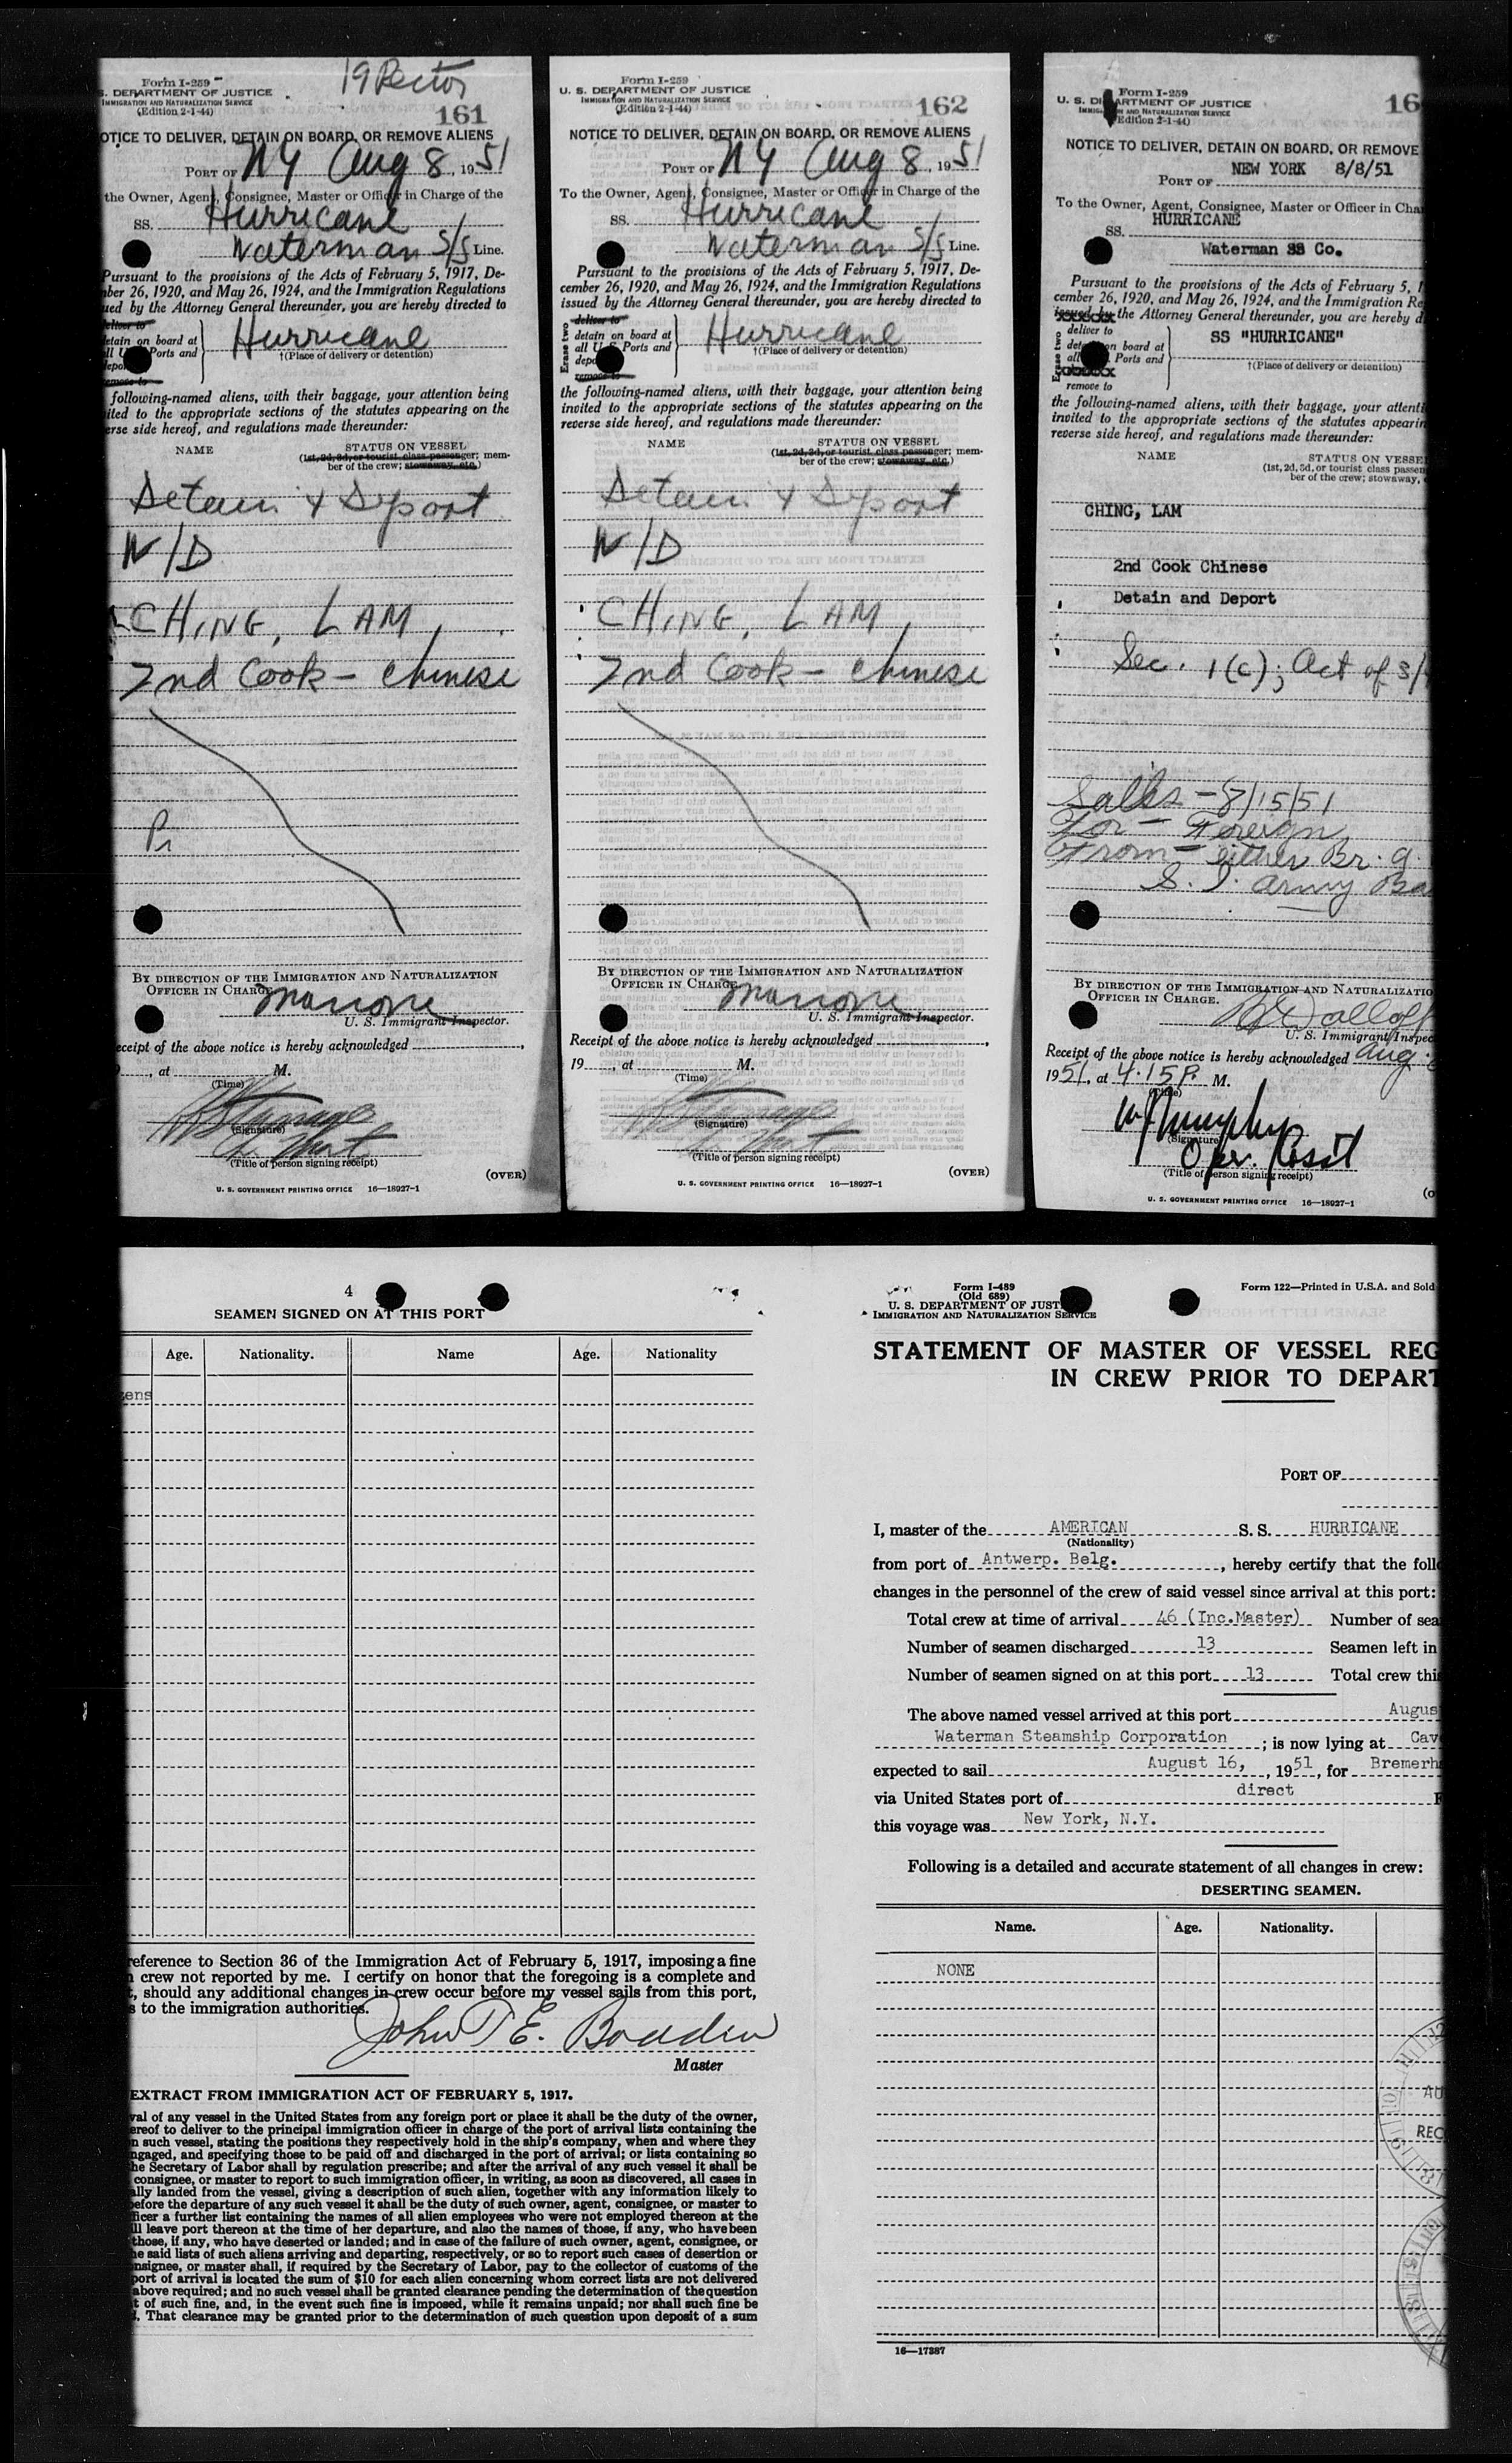 19 Rector
Form I-259
S. DEPARTMENT OF JUSTICE
IMMIGRATION AND NATURALIZATION SERVICE
(Edition 2-1-44)
161
OTICE TO DELIVER, DETAIN ON BOARD, OR REMOVE ALIENS
PORT OF NY Aug 8, 1951
the Owner, Agent, Consignee, Master or Officer in Charge of the
SS. Hurricane
Waterman S/S Line.
Pursuant to the provisions of the Acts of February 5, 1917, De-
ber 26, 1920, and May 26, 1924, and the Immigration Regulations
ued by the Attorney General thereunder, you are hereby directed to
deliver to
etain on board at
all U. S. Ports and
depo
remove to
Hurricane
†(Place of delivery or detention)
following-named aliens, with their baggage, your attention being
ited to the appropriate sections of the statutes appearing on the
erse side hereof, and regulations made thereunder:
NAME
STATUS ON VESSEL
(1st, 2d, 3d, or tourist class passenger; mem-
ber of the crew; stowaway, etc.)
Detain & Deport
N/D
CHING, LAM,
2nd Cook - Chinese
BY DIRECTION OF THE IMMIGRATION AND NATURALIZATION
OFFICER IN CHARGE.
U. S. Immigrant Inspector.
eceipt of the above notice is hereby acknowledged
, at M.
(Time)
(Signature)
(Title of person signing receipt)
(OVER)
U. S. GOVERNMENT PRINTING OFFICE 16—18927-1
Form I-259
U. S. DEPARTMENT OF JUSTICE
IMMIGRATION AND NATURALIZATION SERVICE
(Edition 2-1-44)
162
NOTICE TO DELIVER, DETAIN ON BOARD, OR REMOVE ALIENS
PORT OF NY Aug 8, 1951
To the Owner, Agent, Consignee, Master or Officer in Charge of the
SS. Hurricane
Waterman S/S Line.
Pursuant to the provisions of the Acts of February 5, 1917, De-
cember 26, 1920, and May 26, 1924, and the Immigration Regulations
issued by the Attorney General thereunder, you are hereby directed to
Erase two
deliver to
detain on board at
all U. S. Ports and
depo
remove to
Hurricane
†(Place of delivery or detention)
the following-named aliens, with their baggage, your attention being
invited to the appropriate sections of the statutes appearing on the
reverse side hereof, and regulations made thereunder:
NAME
STATUS ON VESSEL
(1st, 2d, 3d, or tourist class passenger; mem-
ber of the crew; stowaway, etc.)
Detain & Deport
N/D
CHING, LAM,
2nd Cook - Chinese
BY DIRECTION OF THE IMMIGRATION AND NATURALIZATION
OFFICER IN CHARGE.
U. S. Immigrant Inspector.
Receipt of the above notice is hereby acknowledged
19 , at M.
(Time)
(Signature)
(Title of person signing receipt)
(OVER)
U. S. GOVERNMENT PRINTING OFFICE 16—18927-1
Form I-259
U. S. DEPARTMENT OF JUSTICE
IMMIGRATION AND NATURALIZATION SERVICE
(Edition 2-1-44)
16
NOTICE TO DELIVER, DETAIN ON BOARD, OR REMOVE
PORT OF NEW YORK 8/8/51
To the Owner, Agent, Consignee, Master or Officer in Cha
SS. HURRICANE
Waterman SS Co.
Pursuant to the provisions of the Acts of February 5, 1
cember 26, 1920, and May 26, 1924, and the Immigration Re
issued by the Attorney General thereunder, you are hereby d
Erase two
deliver to
detain on board at
all Ports and
remove to
SS "HURRICANE"
†(Place of delivery or detention)
the following-named aliens, with their baggage, your attenti
invited to the appropriate sections of the statutes appearin
reverse side hereof, and regulations made thereunder:
NAME
STATUS ON VESSE
(1st, 2d, 3d, or tourist class passen
ber of the crew; stowaway,
CHING, LAM
2nd Cook Chinese
Detain and Deport
Sec. 1(c); Act of 3/
Sails - 8/15/51
For - Foreign
From - either Br. 9.
S. I. Army Ba
BY DIRECTION OF THE IMMIGRATION AND NATURALIZATIO
OFFICER IN CHARGE.
U. S. Immigrant Inspec
Receipt of the above notice is hereby acknowledged Aug.
1951, at 4.15 P. M.
(Time)
W Murphy
(Signature)
Oper. Asst
(Title of person signing receipt)
(O
U. S. GOVERNMENT PRINTING OFFICE 16—18927-1
4
SEAMEN SIGNED ON AT THIS PORT
Age. Nationality. Name Age. Nationality
zens
reference to Section 36 of the Immigration Act of February 5, 1917, imposing a fine
crew not reported by me. I certify on honor that the foregoing is a complete and
t, should any additional changes in crew occur before my vessel sails from this port,
s to the immigration authorities.
John T E. Bodden
Master
EXTRACT FROM IMMIGRATION ACT OF FEBRUARY 5, 1917.
val of any vessel in the United States from any foreign port or place it shall be the duty of the owner,
ereof to deliver to the principal immigration officer in charge of the port of arrival lists containing the
n such vessel, stating the positions they respectively hold in the ship's company, when and where they
ngaged, and specifying those to be paid off and discharged in the port of arrival; or lists containing so
he Secretary of Labor shall by regulation prescribe; and after the arrival of any such vessel it shall be
consignee, or master to report to such immigration officer, in writing, as soon as discovered, all cases in
ally landed from the vessel, giving a description of such alien, together with any information likely to
efore the departure of any such vessel it shall be the duty of such owner, agent, consignee, or master to
ficer a further list containing the names of all alien employees who were not employed thereon at the
ll leave port thereon at the time of her departure, and also the names of those, if any, who have been
those, if any, who have deserted or landed; and in case of the failure of such owner, agent, consignee, or
he said lists of such aliens arriving and departing, respectively, or so to report such cases of desertion or
nsignee, or master shall, if required by the Secretary of Labor, pay to the collector of customs of the
port of arrival is located the sum of $10 for each alien concerning whom correct lists are not delivered
above required; and no such vessel shall be granted clearance pending the determination of the question
t of such fine, and, in the event such fine is imposed, while it remains unpaid; nor shall such fine be
. That clearance may be granted prior to the determination of such question upon deposit of a sum
Form I-489
(Old 689)
U. S. DEPARTMENT OF JUST
IMMIGRATION AND NATURALIZATION SERVICE
Form 122—Printed in U.S.A. and Sold
STATEMENT OF MASTER OF VESSEL REG
IN CREW PRIOR TO DEPART
PORT OF
I, master of the AMERICAN S. S. HURRICANE
(Nationality)
from port of Antwerp. Belg. , hereby certify that the foll
changes in the personnel of the crew of said vessel since arrival at this port:
Total crew at time of arrival 46 (Inc.Master) Number of sea
Number of seamen discharged 13 Seamen left in
Number of seamen signed on at this port 13 Total crew thi
The above named vessel arrived at this port Augus
Waterman Steamship Corporation ; is now lying at Cav
expected to sail August 16, , 1951, for Bremerh
via United States port of direct
this voyage was New York, N.Y.
Following is a detailed and accurate statement of all changes in crew:
DESERTING SEAMEN.
Name. Age. Nationality.
NONE
AU
REC
16—17387